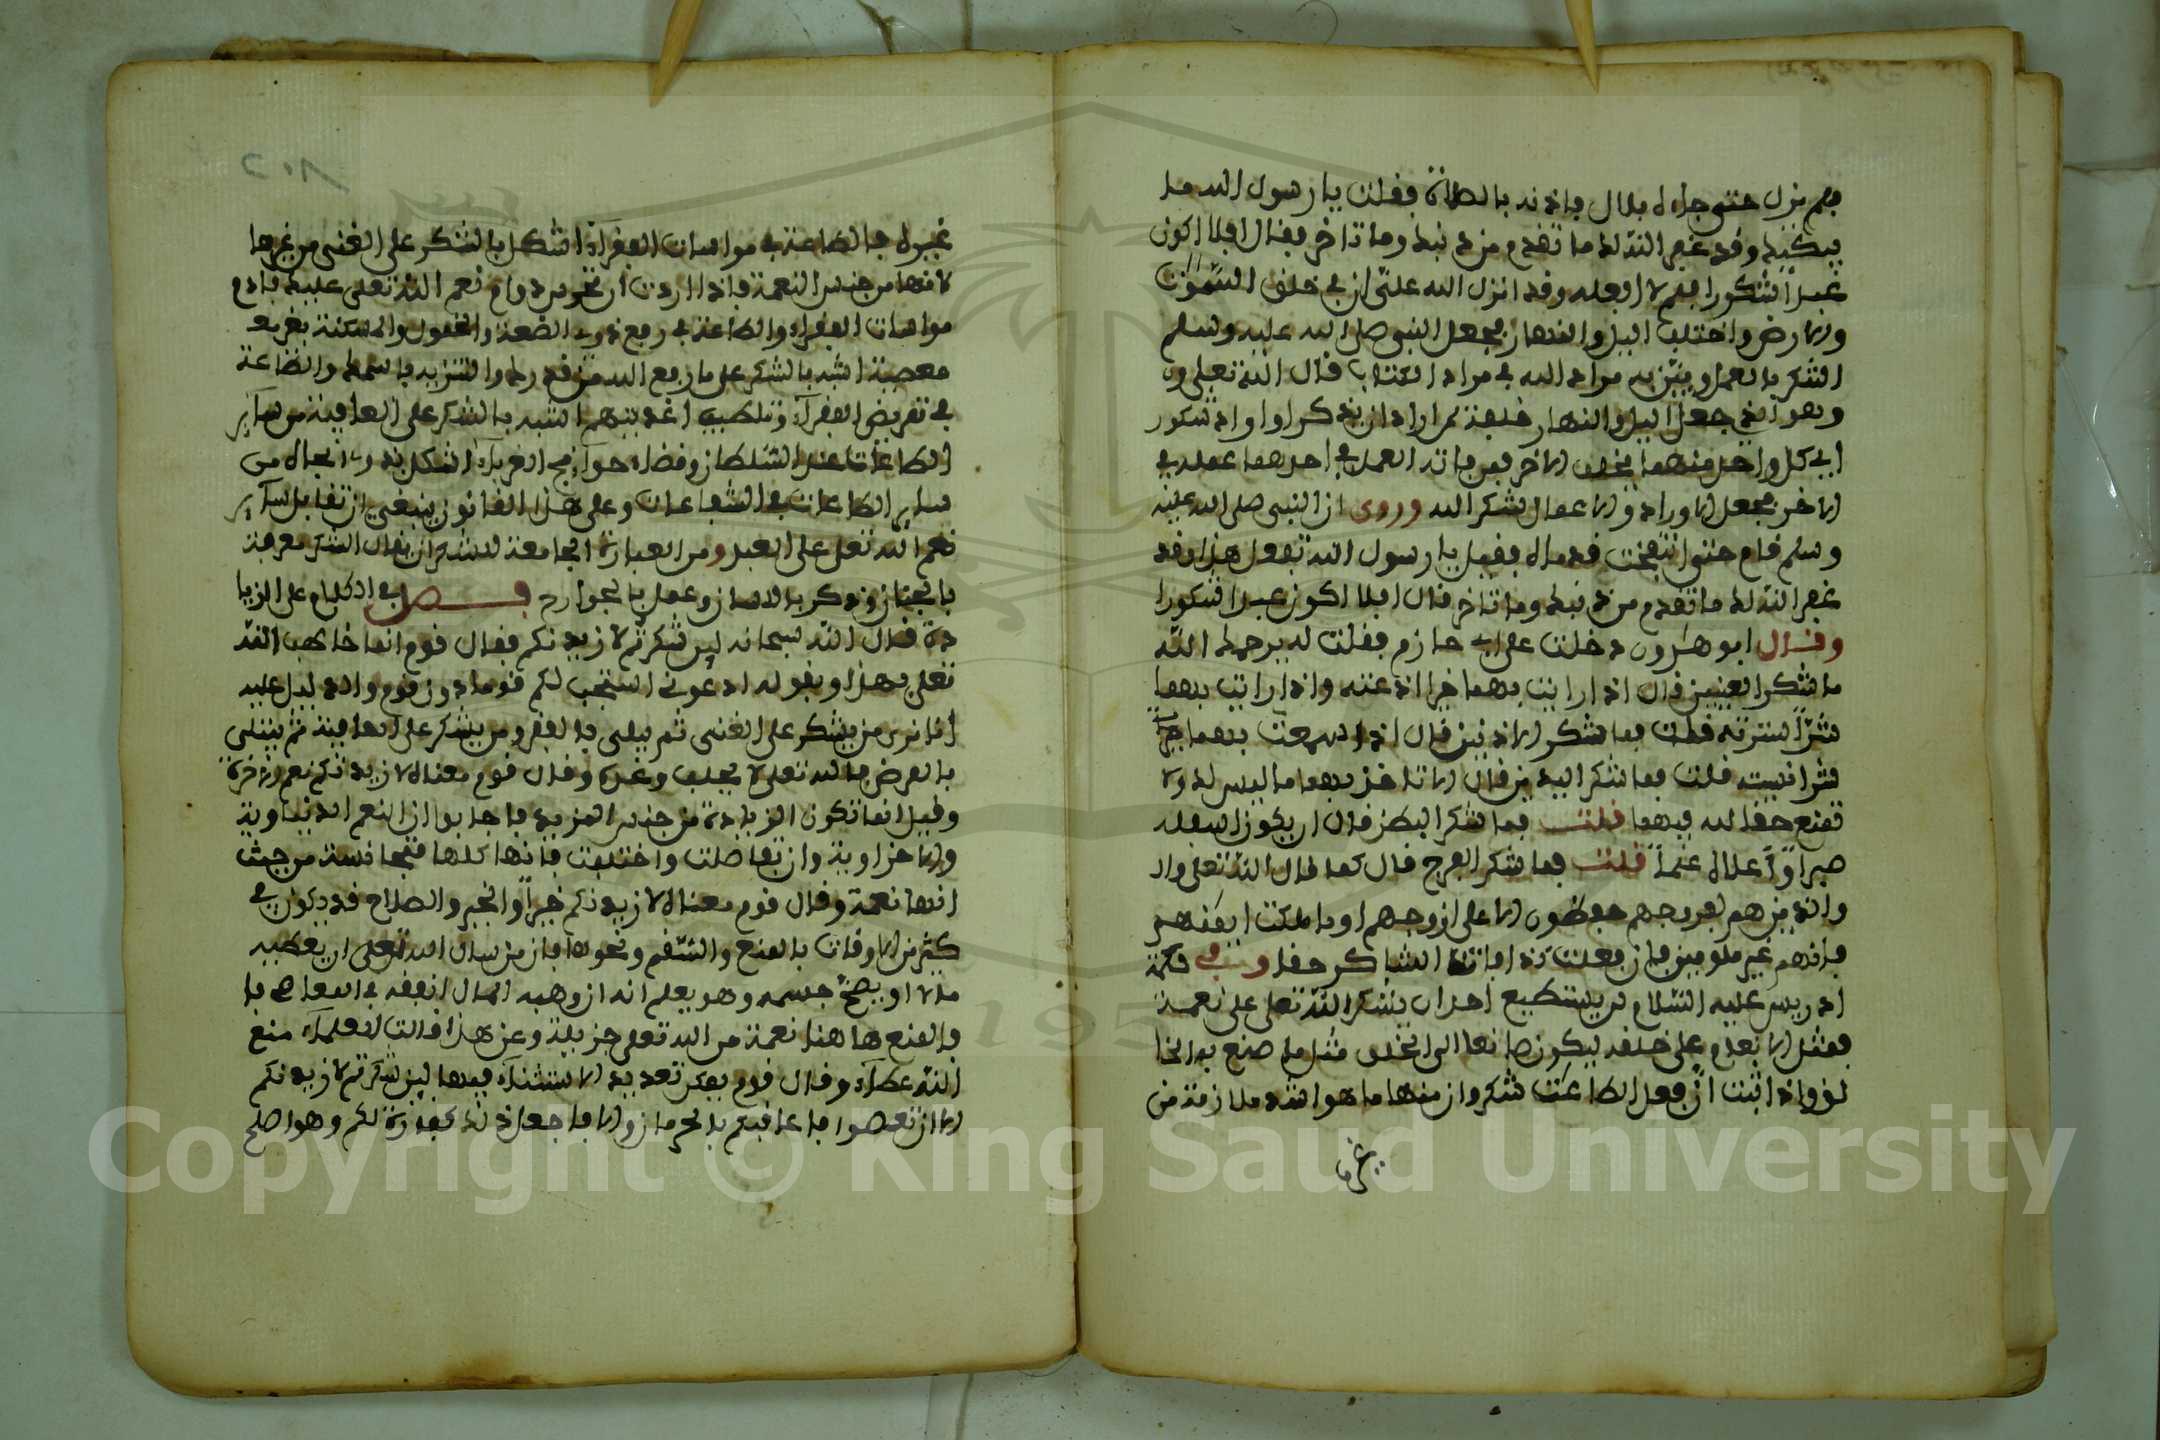 فلم يزل حتى جاءه بلال فاذنه بالصلاة فقلت يا رسول الله ما
يبكيك وقد غفر الله لك ما تقدم من ذنبك وما تاخر فقال افلا اكون
عبدا شكورا فلم لا افعله وقد انزل الله علي ان في خلق السموت
والارض واختلف اليل والنهار فجعل النبي صلى الله عليه وسلم
الشكر بالعمل وبين به مراد الله في مراد الكتاب قال الله تعلى و
وهو الذي جعل اليل والنهار خلفة لمن اراد ان يذكر او اراد شكور
اي كل واحد منهما يخلف الاخر فمن فاته العمل في احدهما عمله في
الاخر فجعل الاوراد والاعمال لشكر الله وروي ان النبي صلى الله عليه
وسلم قام حتى انتفخت قدماه فقيل يا رسول الله تفعل هذا وقد
غفر الله لك ما تقدم من ذنبك وما تاخر قال افلا اكون عبدا شكورا
وقال ابو هرون دخلت على ابي حازم فقلت له يرحمك الله
ما شكر العينين قال اذا رايت بهما خيرا اذعته واذا رايت بهما
شرا سترته قلت فما شكر الاذنين قال اذا سمعت بهما خيرا
شرا نسيته قلت فما شكر اليدين قال الا تاخذ بهما ما ليس لك ولا
تمنع حقا لله فيهما قلت فما شكر البطن قال ان يكون اسفله
صبرا واعلاه علما قلت فما شكر الفرج قال كما قال الله تعلى وال
والذين هم لفروجهم حفظون الا على ازوجهم او ما ملكت ايمنهم
فانهم غير ملومين فان فعلت ذا فانت الشاكر حقا وفي حكمة
ادريس عليه السلام لن يستطيع احد ان يشكر الله تعلى على نعمه
بمثل الانعام على خلقه ليكون صانعا الى الخلق مثل ما صنع به الخا
لق واذا ثبت ان فعل الطاعت شكر وان منها ما هو اشد ملازمة من
غيره
غيره فالطاعة في مواسات الفقراء اشكل بالشكر على الغنى من غيرها
لانها من جنس النعمة فاذا اردت ان تحرس دوام نعم الله تعلى عليك فادم
مواسات الفقراء والطاعة في رفع ذوي الضعة والخمول والمسكنة بغير
معصية اشبه بالشكر على ما رفع الله من قدرك والتنزيه باسمك والطاعة
في تمريض الفقراء وتلطيف اغذيتهم اشبه بالشكر على العافية من ساير
الطاعات عند السلطان وقضاء حوائج الغرباء اشكل به والجاه من
ساير الطاعات في الشفاعات وعلى هذا القانون ينبغي ان تقابل ساير
نعم الله تعلى على العبد ومن العبارة الجامعة للشكر ان يقال الشكر معرفة
بالجنان وذكر باللسان وعمل بالجوارح فصل في الكلام على الزيا
دة قال الله سبحانه لين شكرتم لازيدنكم فقال قوم انما خاطب الله
تعلى بهذا وبقوله ادعوني استجب لكم قوما دون قوم والدليل عليه
انا نرى من يشكر على الغنى ثم يبلى بالفقر ومن يشكر على العافية ثم يبتلى
بالمرض والله تعلى لا يخلف وعده وقال قوم معناه لازيدنكم نعم الاخرة
وقيل انما تكون الزيادة من جنس المزيد فاجابوا ان النعم الدنياوية
والاخراوية وان تفاضلت واختلفت فانها كلها متجانسة من حيث
انها نعمة وقال قوم معناه لازيدنكم خيرا والخير والصلاح قد يكون في
كثير من الاوقات بالمنع والسقم ونحوها فان من سال الله تعلى ان يعطيه
مالا او يصح جسمه وهو يعلم انه ان وهبه المال انفقه في المعاصي با
فالمنع هاهنا نعمة من الله تعلى جزيلة وعن هذا قالت العلماء منع
الله عطاء وقال قوم يمكن تقدير الاستثناء فيها لين شكرتم لازيدنكم
الا ان تعصوا فاعاقبكم بالحرمان والا فاجعل ذلك كفارة لكم وهو اصلح